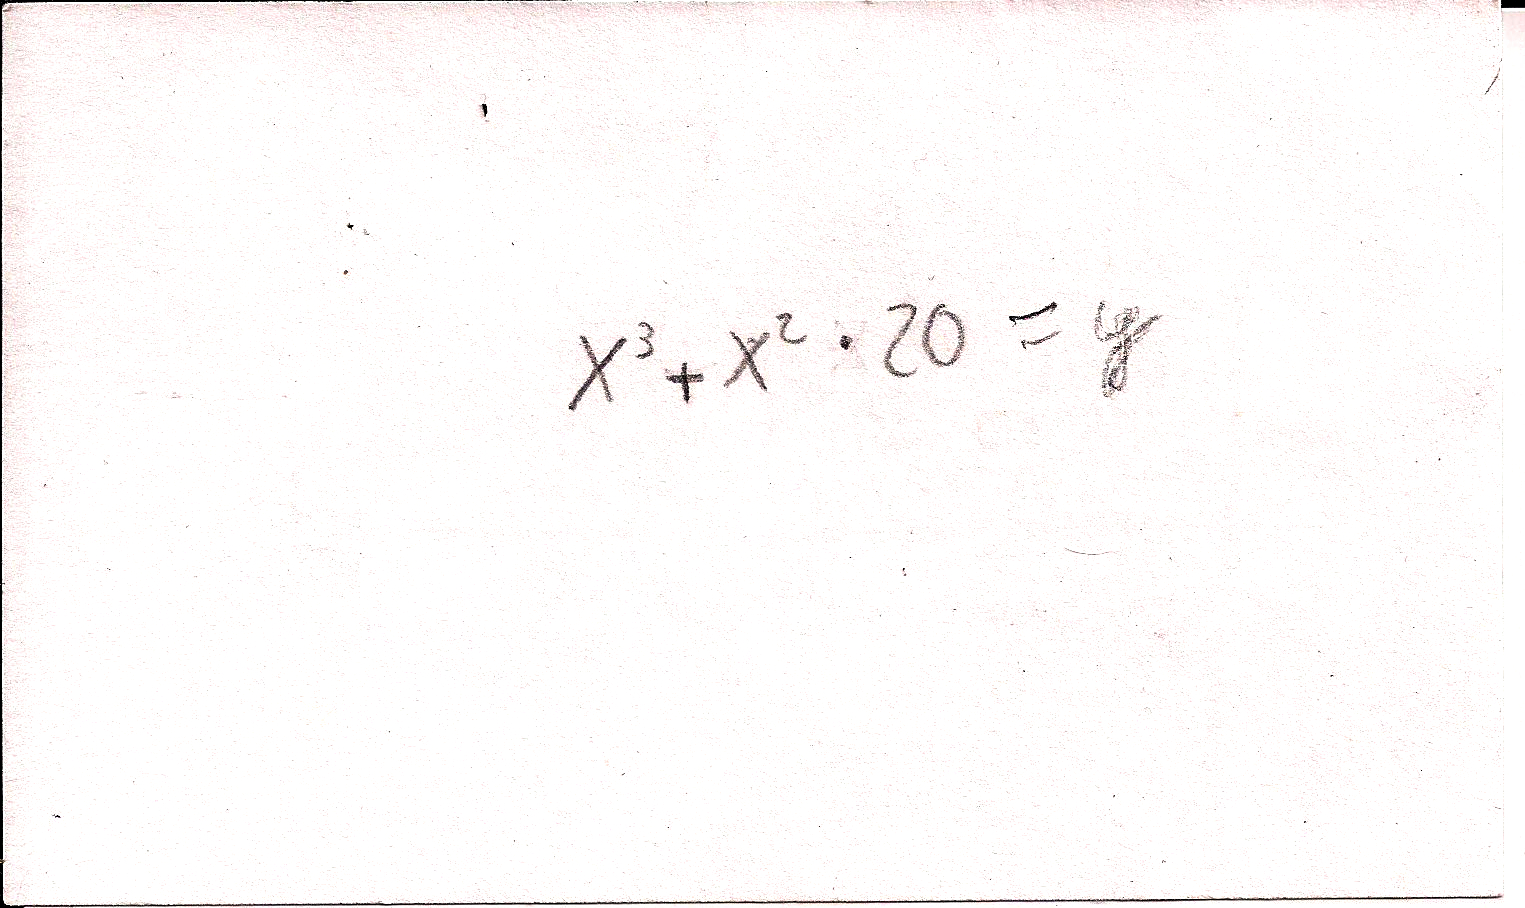 x³ + x² · 20 = y